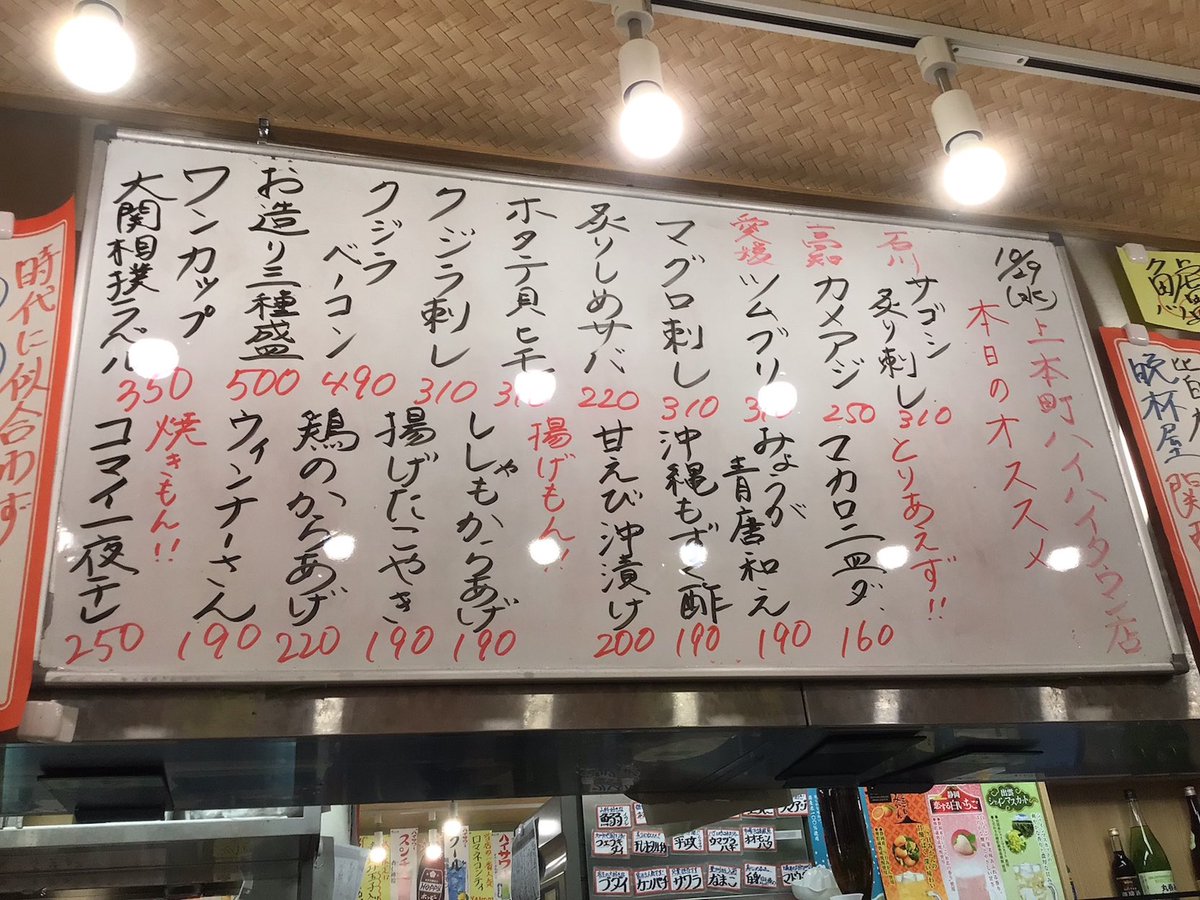 10/29(水)
上本町ハイハイタウン店
本日のオススメ
石川 サゴシ
炙り刺し 310
高知 カメアジ 250
愛媛 ツムブリ 310
マグロ刺し 310
炙りしめサバ 220
ホタテ貝ヒモ 310
クジラ刺し 310
クジラ
ベーコン 490
お造り三種盛 500
ワンカップ
大関相撲ラベル 350
とりあえず!!
マカロニ皿ダ 160
みょうが
青唐和え 190
沖縄もずく酢 190
甘えび沖漬け 200
揚げもん!
ししゃもからあげ 190
揚げたこやき 190
鶏のからあげ 220
ウィンナーさん 190
焼きもん!!
コマイ一夜干し 250
時代に似合わず
晩杯屋
関西
フエフキダイ
平政
ブダイ
ケンパチ
サワラ
なまこ
静岡
恋する白いちご
出雲
シャインマスカット
HOPPY